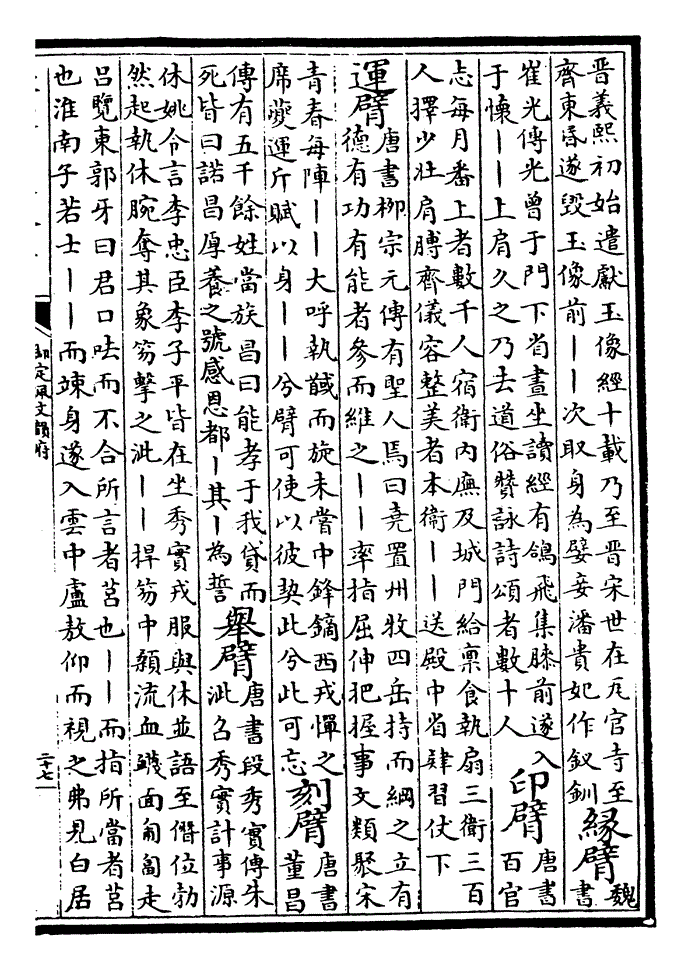 晋義熙初始遣獻玉像經十載乃至晋宋世在瓦官寺至
齊東昏遂毁玉像前――次取身為嬖妾潘貴妃作釵釧
緣臂
魏
書
崔光傳光曾于門下省晝坐讀經有鴿飛集膝前遂入
于懷――上肩久之乃去道俗贊詠詩頌者數十人
印臂
唐書
百官
志每月番上者數千人宿衛内廡及城門給禀食執扇三衛三百
人擇少壯肩膊齊儀容整美者本衛――送殿中省肄習仗下
運臂
唐書柳宗元傳有聖人焉曰堯置州牧四岳持而綱之立有
德有功有能者參而維之――率指屈伸把握事文類聚宋
青春每陣――大呼執馘而旋未嘗中鋒鏑西戎憚之
席夔運斤賦以身――兮臂可使以彼契此兮此可忘
刻臂
唐書
董昌
傳有五千餘姓當族昌曰能孝于我貸而
死皆曰諾昌厚養之號感恩都―其―為誓
舉臂
唐書段秀實傳朱
泚召秀實計事源
休姚令言李忠臣李子平皆在坐秀實戎服與休並語至僭位勃
然起執休腕奪其象笏擊之泚――捍笏中顙流血衊面匍匐走
呂覽東郭牙曰君口呿而不合所言者莒也――而指所當者莒
也淮南子若士――而竦身遂入雲中盧敖仰而視之弗見曰居
御定佩文韻府
二十七